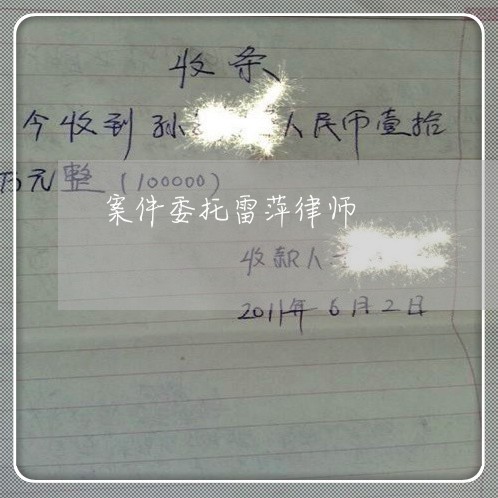 收条
今收到孙 人民币壹拾
万元整（100000）
案件委托雷萍律师
收款人
2011年6月2日